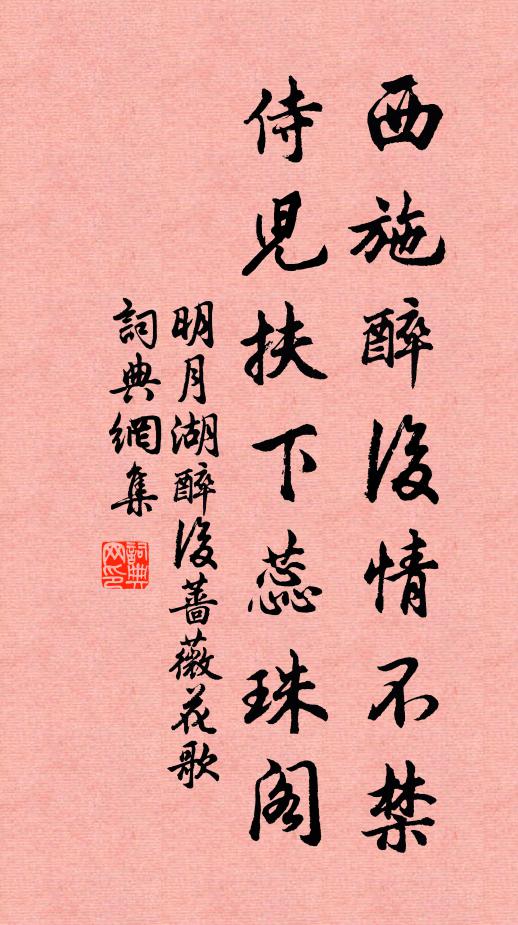 西施醉後情不禁
侍兒扶下蕊珠閣
明月湖醉後薔薇花歌
詞典網集
詞典網印